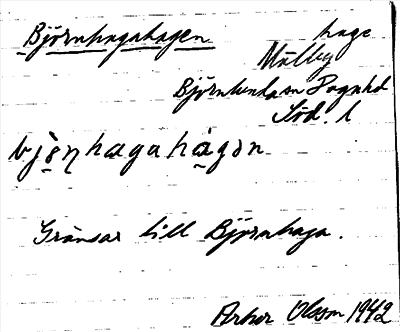 Björnhagahagen hage
Målby
Björnlunda sn
Söd. l
bjö̀ṇhagahàgən
Gränsar till Björnhaga.
Olsson 1942